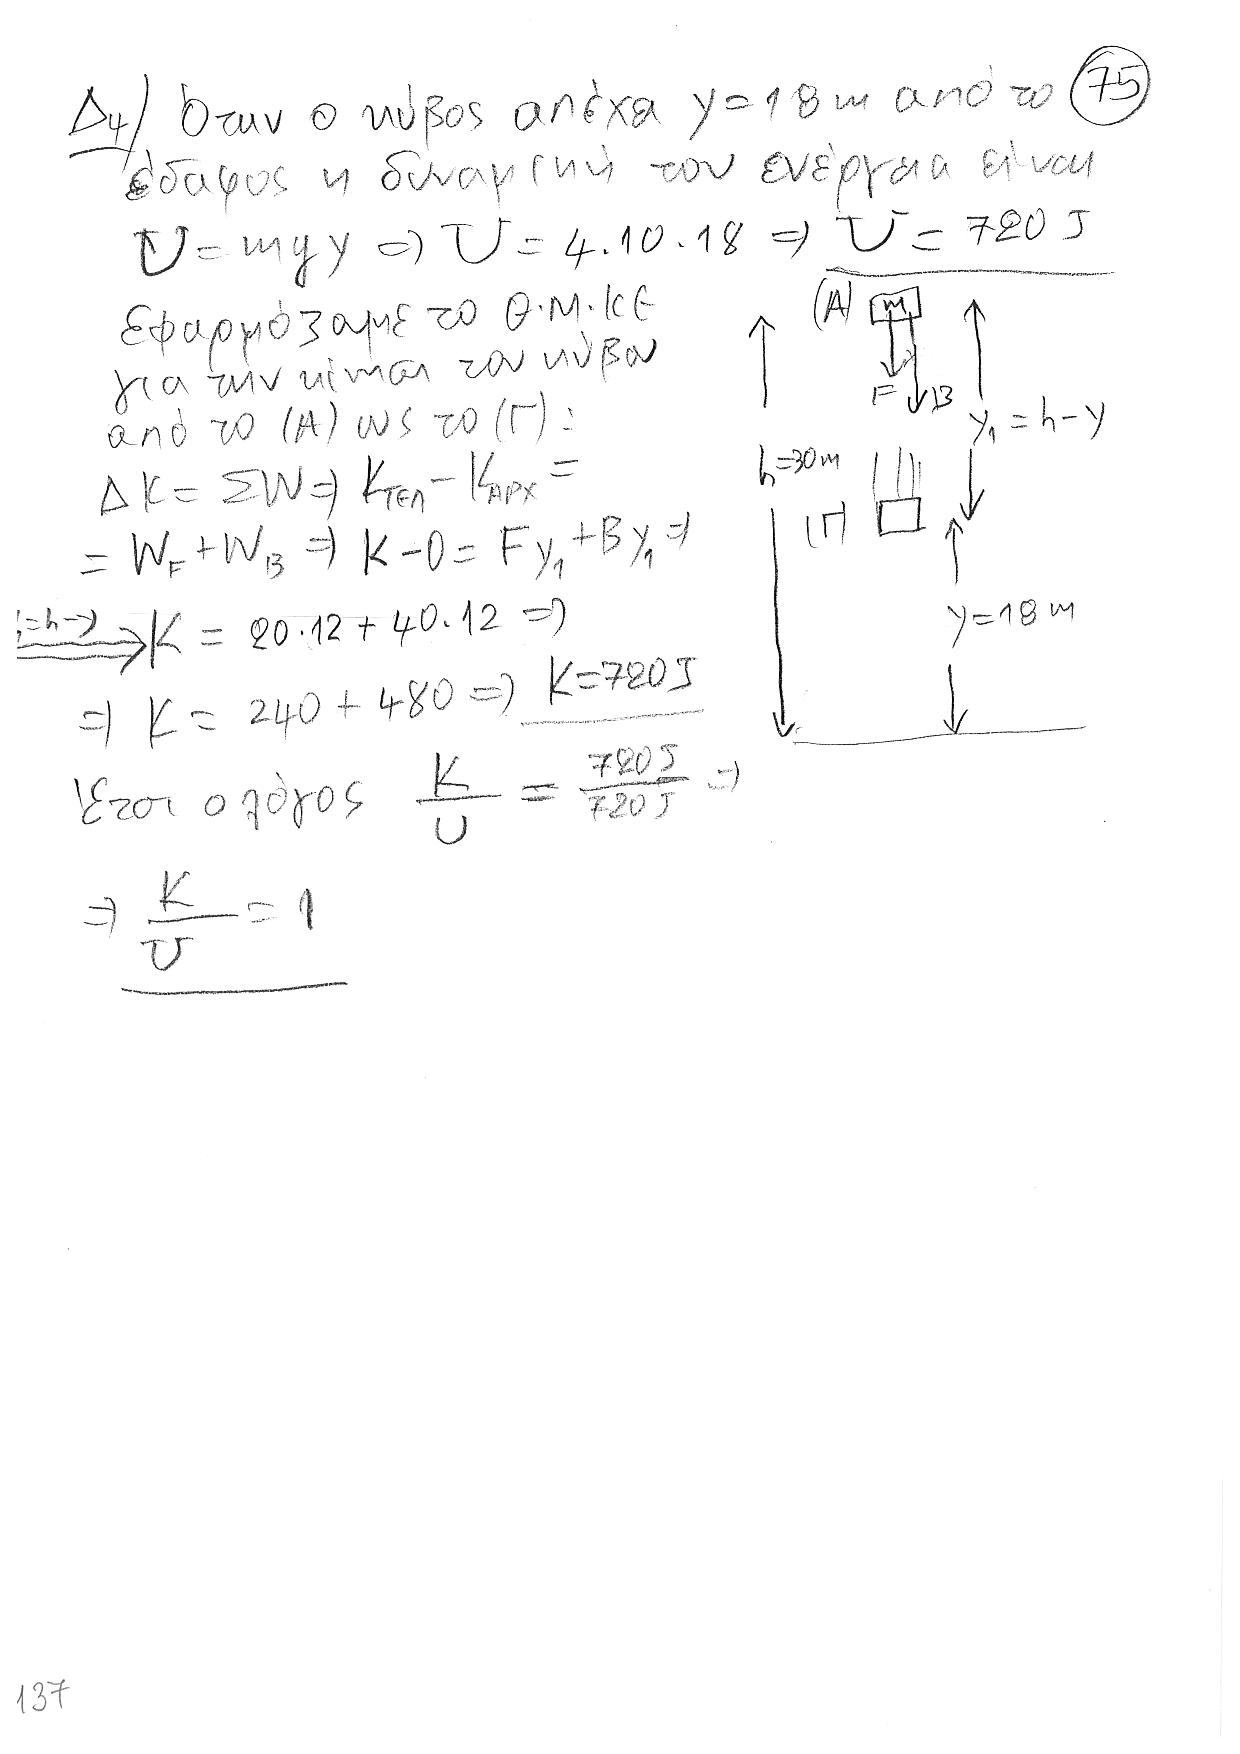 Δ4) Όταν ο κύβος απέχει y=18m από το (75)
έδαφος η δυναμική του ενέργεια είναι
U=mgy => U=4.10.18 => U=720J
Εφαρμόζαμε το Θ.Μ.Κ.Ε
για την κίνηση του κύβου
από το (Α) ως το (Γ):
ΔK=ΣW=> KΤΕΛ-KΑΡΧ=
=WF+WB => K-0=Fy1+By1=>
=h-y => K=20.12+40.12=>
=> K=240+480=> K=720J
Έτσι ο λόγος K/U = 720J/720J =>
=> K/U = 1
(A) m
F B
y1=h-y
h=30m
(Γ)
y=18m
137